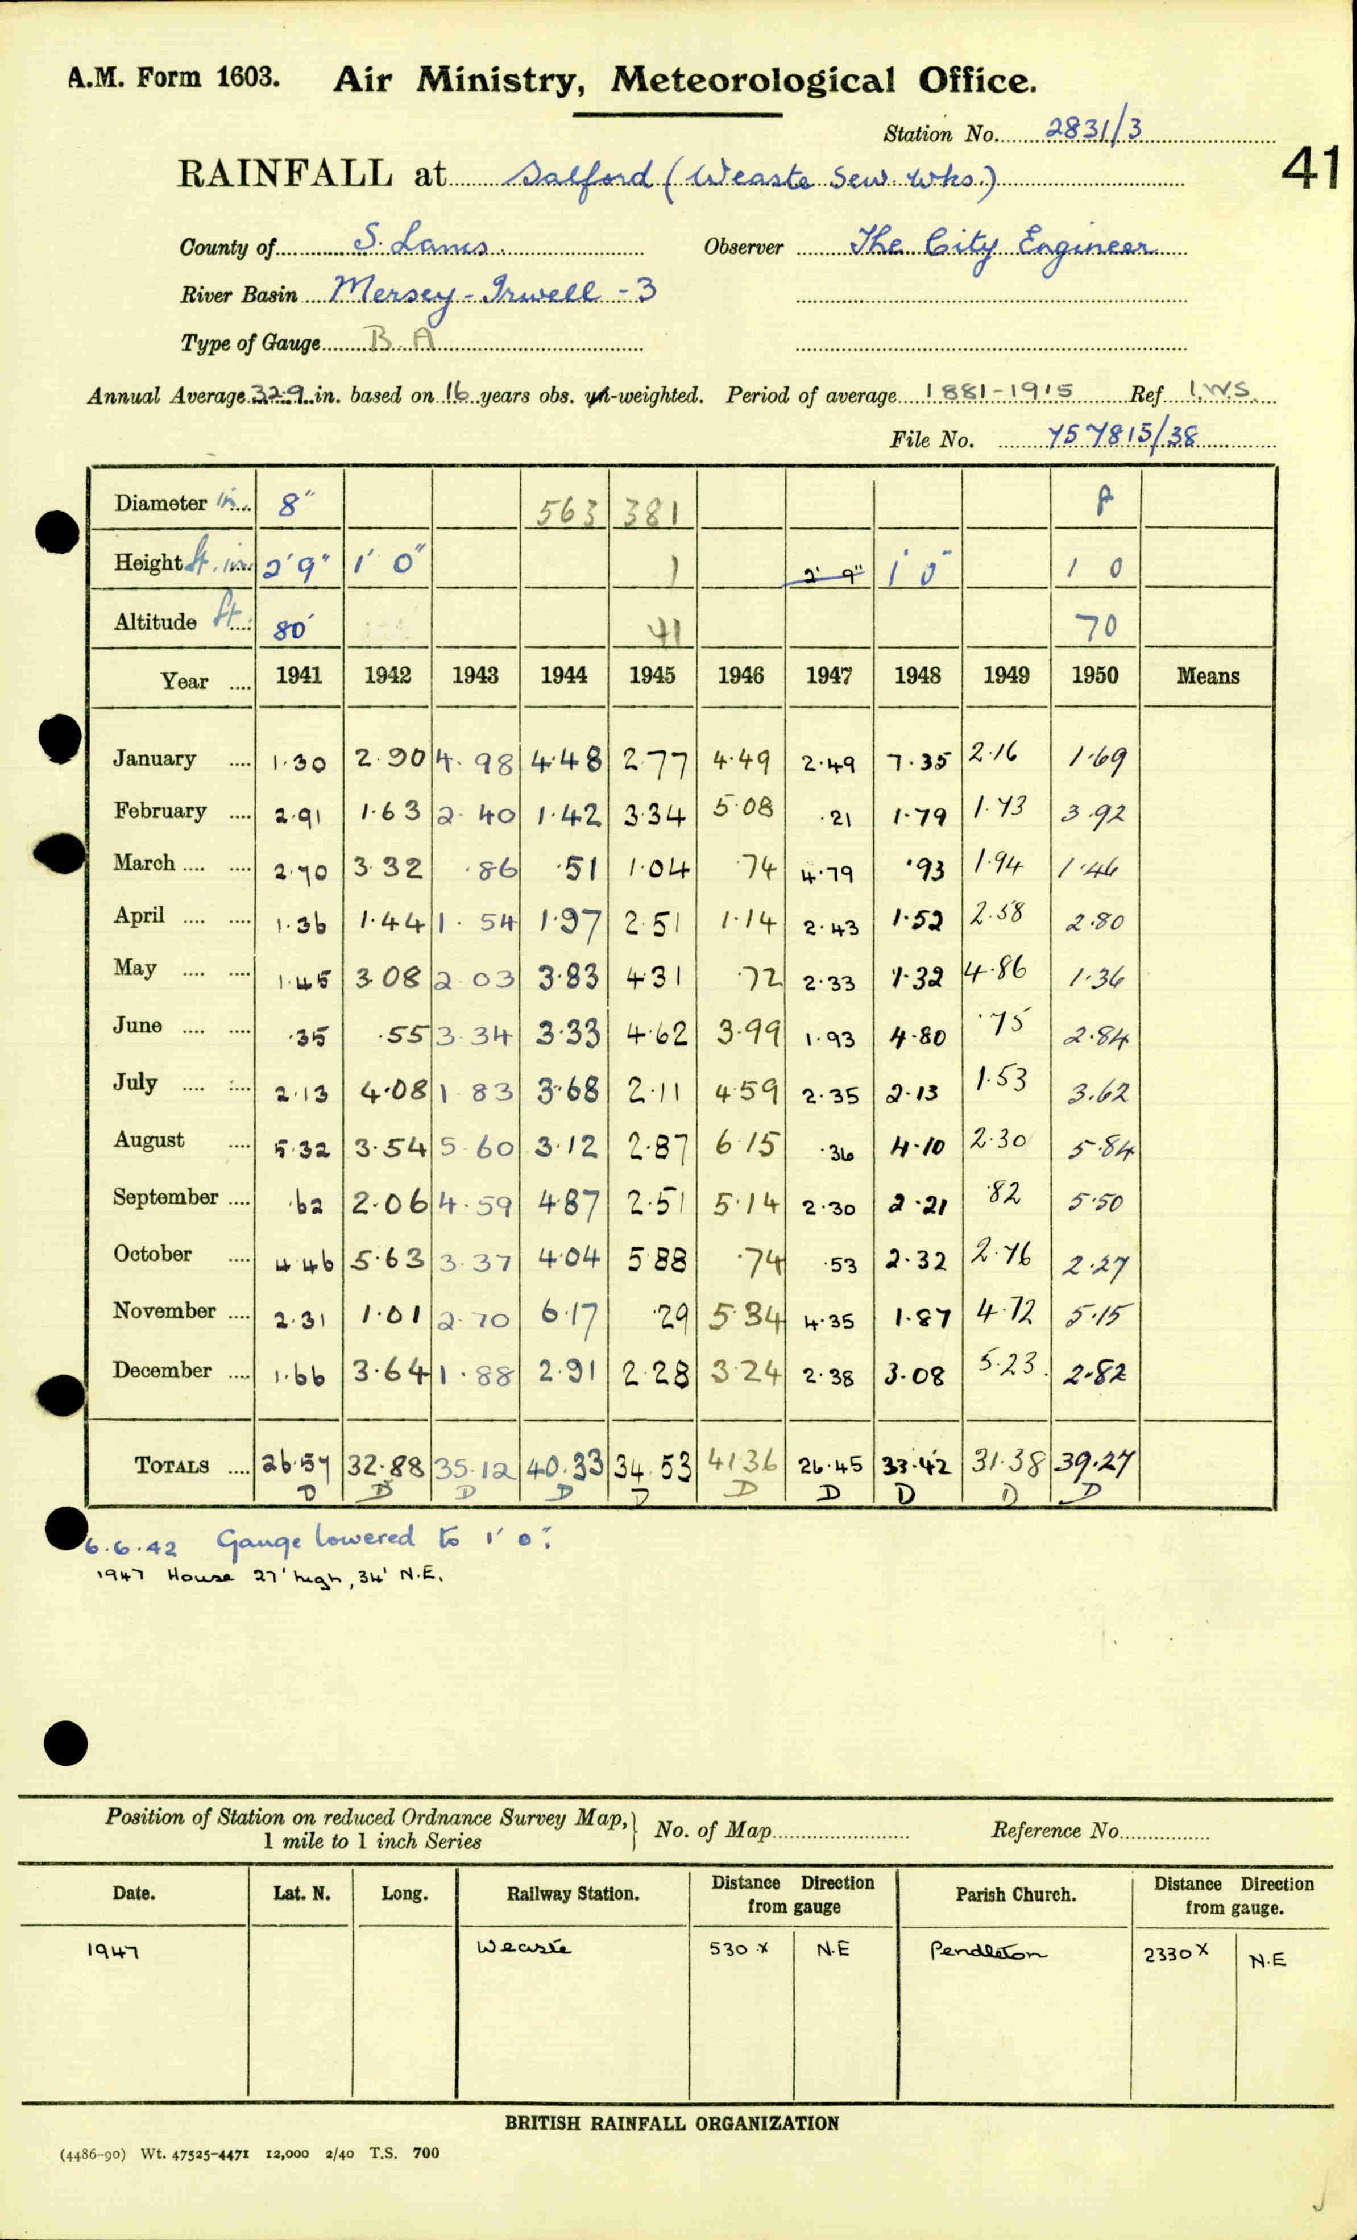 A.M. Form 1603. Air Ministry, Meteorological Office.
Station No. 2831/3
41
RAINFALL at Salford (Weaste Sew. Wks.)
County of S. Lancs. Observer The City Engineer
River Basin Mersey-Irwell-3
Type of Gauge B.A
Annual Average 32.9 in. based on 16 years obs. un-weighted. Period of average 1881-1915 Ref I.W.S.
File No. 757815/38
Diameter in. 8" 563 381 8
Height ft. in. 2' 9" 1' 0" 1 2' 9" 1' 0" 1 0
Altitude ft. 80' 41 70
Year .... 1941 1942 1943 1944 1945 1946 1947 1948 1949 1950 Means
January .... 1.30 2.90 4.98 4.48 2.77 4.49 2.49 7.35 2.16 1.69
February .... 2.91 1.63 2.40 1.42 3.34 5.08 .21 1.79 1.73 3.92
March .... .... 2.70 3.32 .86 .51 1.04 .74 4.79 .93 1.94 1.46
April .... .... 1.36 1.44 1.54 1.97 2.51 1.14 2.43 1.52 2.58 2.80
May .... .... 1.45 3.08 2.03 3.83 4.31 .72 2.33 1.32 4.86 1.36
June .... .... .35 .55 3.34 3.33 4.62 3.99 1.93 4.80 .75 2.84
July .... .... 2.13 4.08 1.83 3.68 2.11 4.59 2.35 2.13 1.53 3.62
August .... 5.32 3.54 5.60 3.12 2.87 6.15 .36 4.10 2.30 5.84
September .... .62 2.06 4.59 4.87 2.51 5.14 2.30 2.21 .82 5.50
October .... 4.46 5.63 3.37 4.04 5.88 .74 .53 2.32 2.76 2.27
November .... 2.31 1.01 2.70 6.17 .29 5.34 4.35 1.87 4.72 5.15
December .... 1.66 3.64 1.88 2.91 2.28 3.24 2.38 3.08 5.23 2.82
TOTALS .... 26.57 32.88 35.12 40.33 34.53 41.36 26.45 33.42 31.38 39.27
D D D D D D D D D D
6.6.42 Gauge lowered to 1' 0".
1947 House 27' high, 34' N.E.
Position of Station on reduced Ordnance Survey Map, } No. of Map Reference No.
1 mile to 1 inch Series
Date. Lat. N. Long. Railway Station. Distance Direction from gauge Parish Church. Distance Direction from gauge.
1947 Weaste 530 x N.E Pendleton 2330 x N.E
BRITISH RAINFALL ORGANIZATION
(4486-90) Wt. 47525-4471 12,000 2/40 T.S. 700